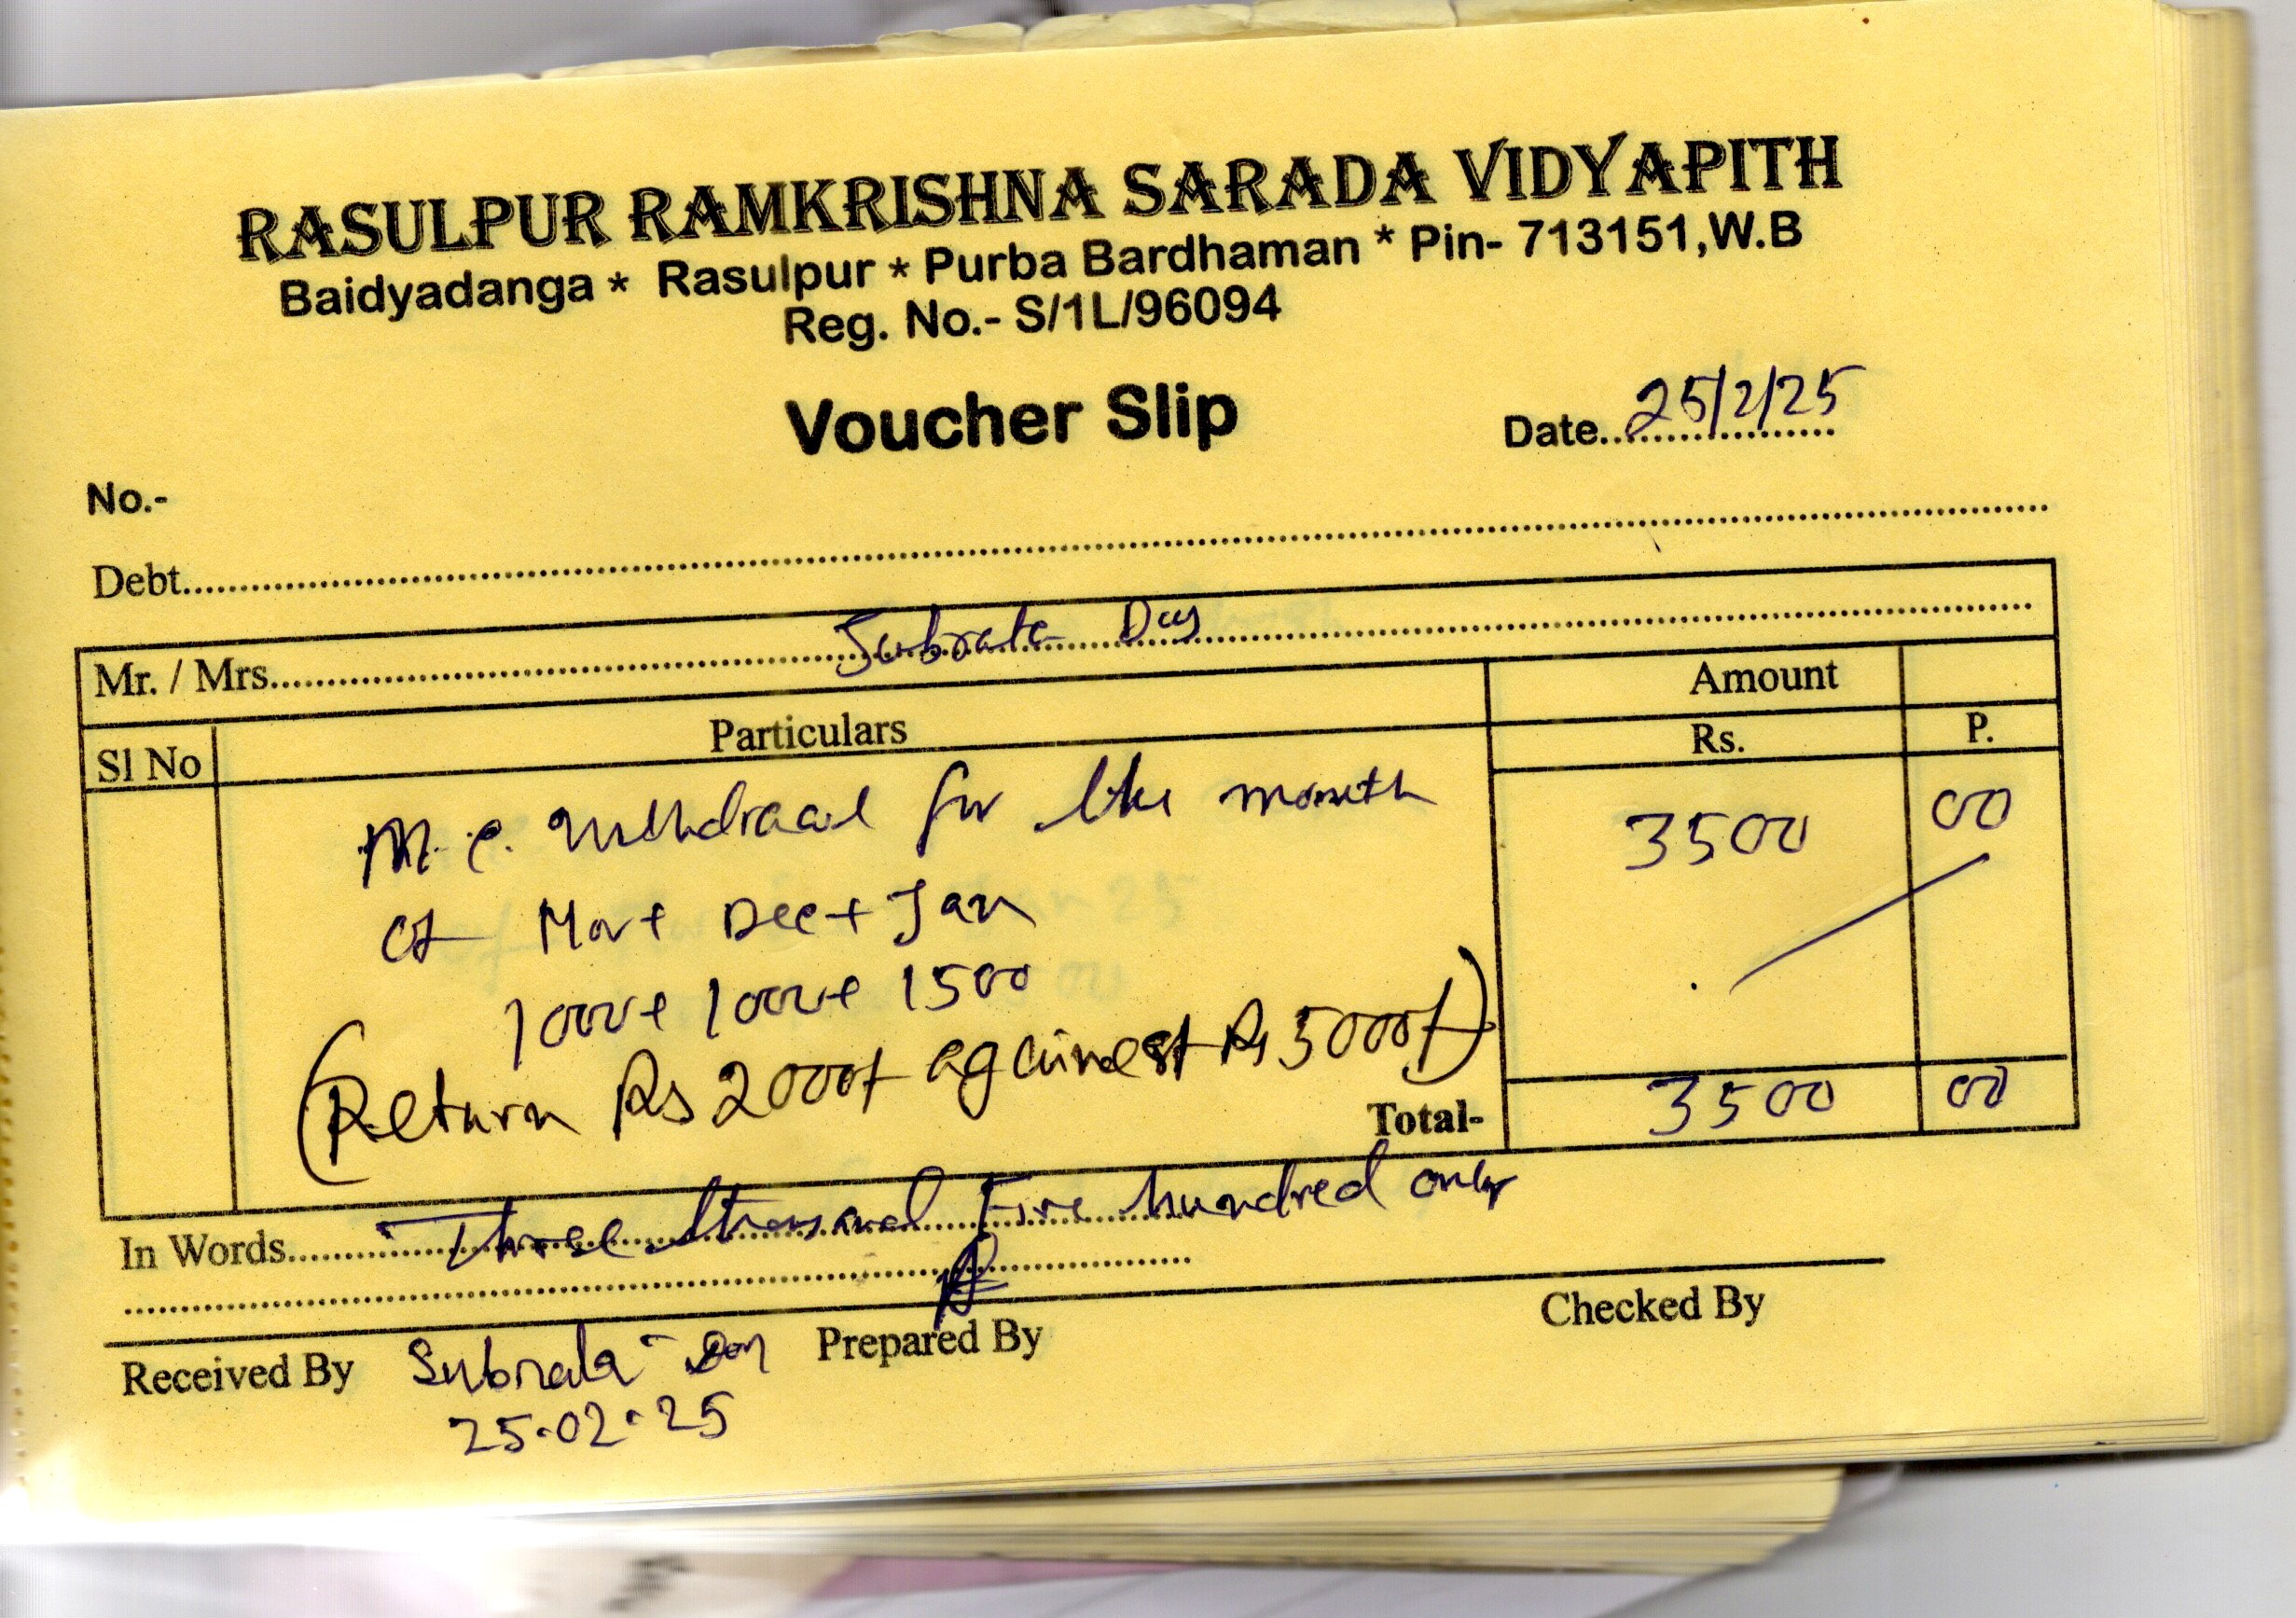 RASULPUR RAMKRISHNA SARADA VIDYAPITH
Baidyadanga * Rasulpur * Purba Bardhaman * Pin- 713151,W.B
Reg. No.- S/1L/96094
Voucher Slip
Date.. 25/2/25
No.-
Debt
Mr. / Mrs. Subrata Das
Sl No Particulars Amount
Rs. P.
M.C. withdraal for the month 3500 00
of Nov + Dec + Jan
1000+ 1000+ 1500
(Return Rs 2000/- against Rs 5000/-)
Total- 3500 00
In Words Three thousand Five hundred only
Received By Subrata Prepared By Checked By
25.02.25